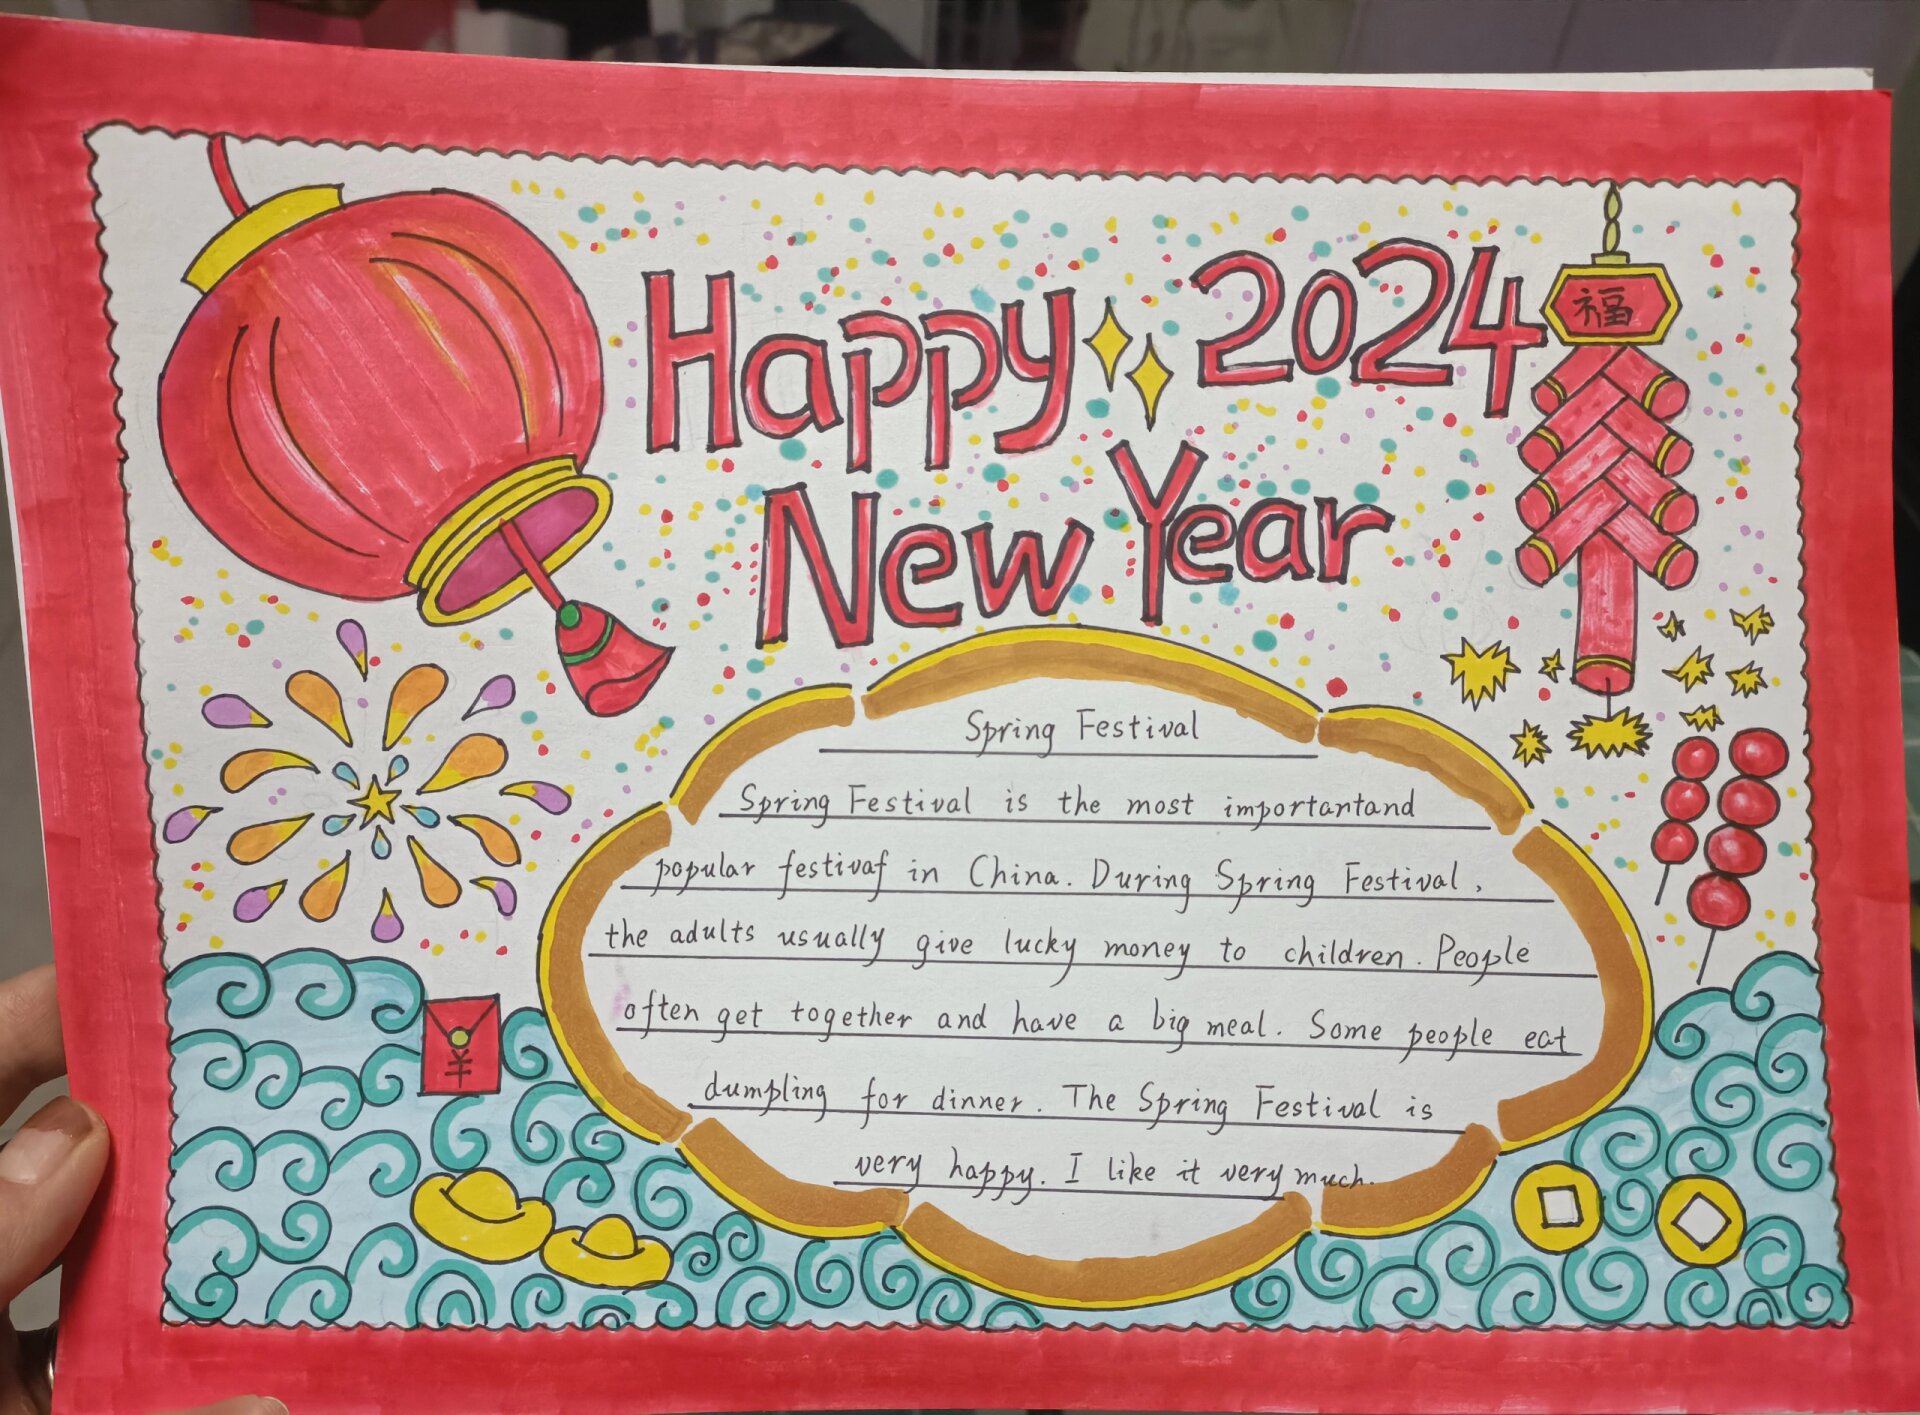 Happy 2024
福
New Year
Spring Festival
Spring Festival is the most importantand
popular festivaf in China. During Spring Festival,
the adults usually give lucky money to children. People
often get together and have a big meal. Some people eat
dumpling for dinner. The Spring Festival is
very happy. I like it very much.
¥